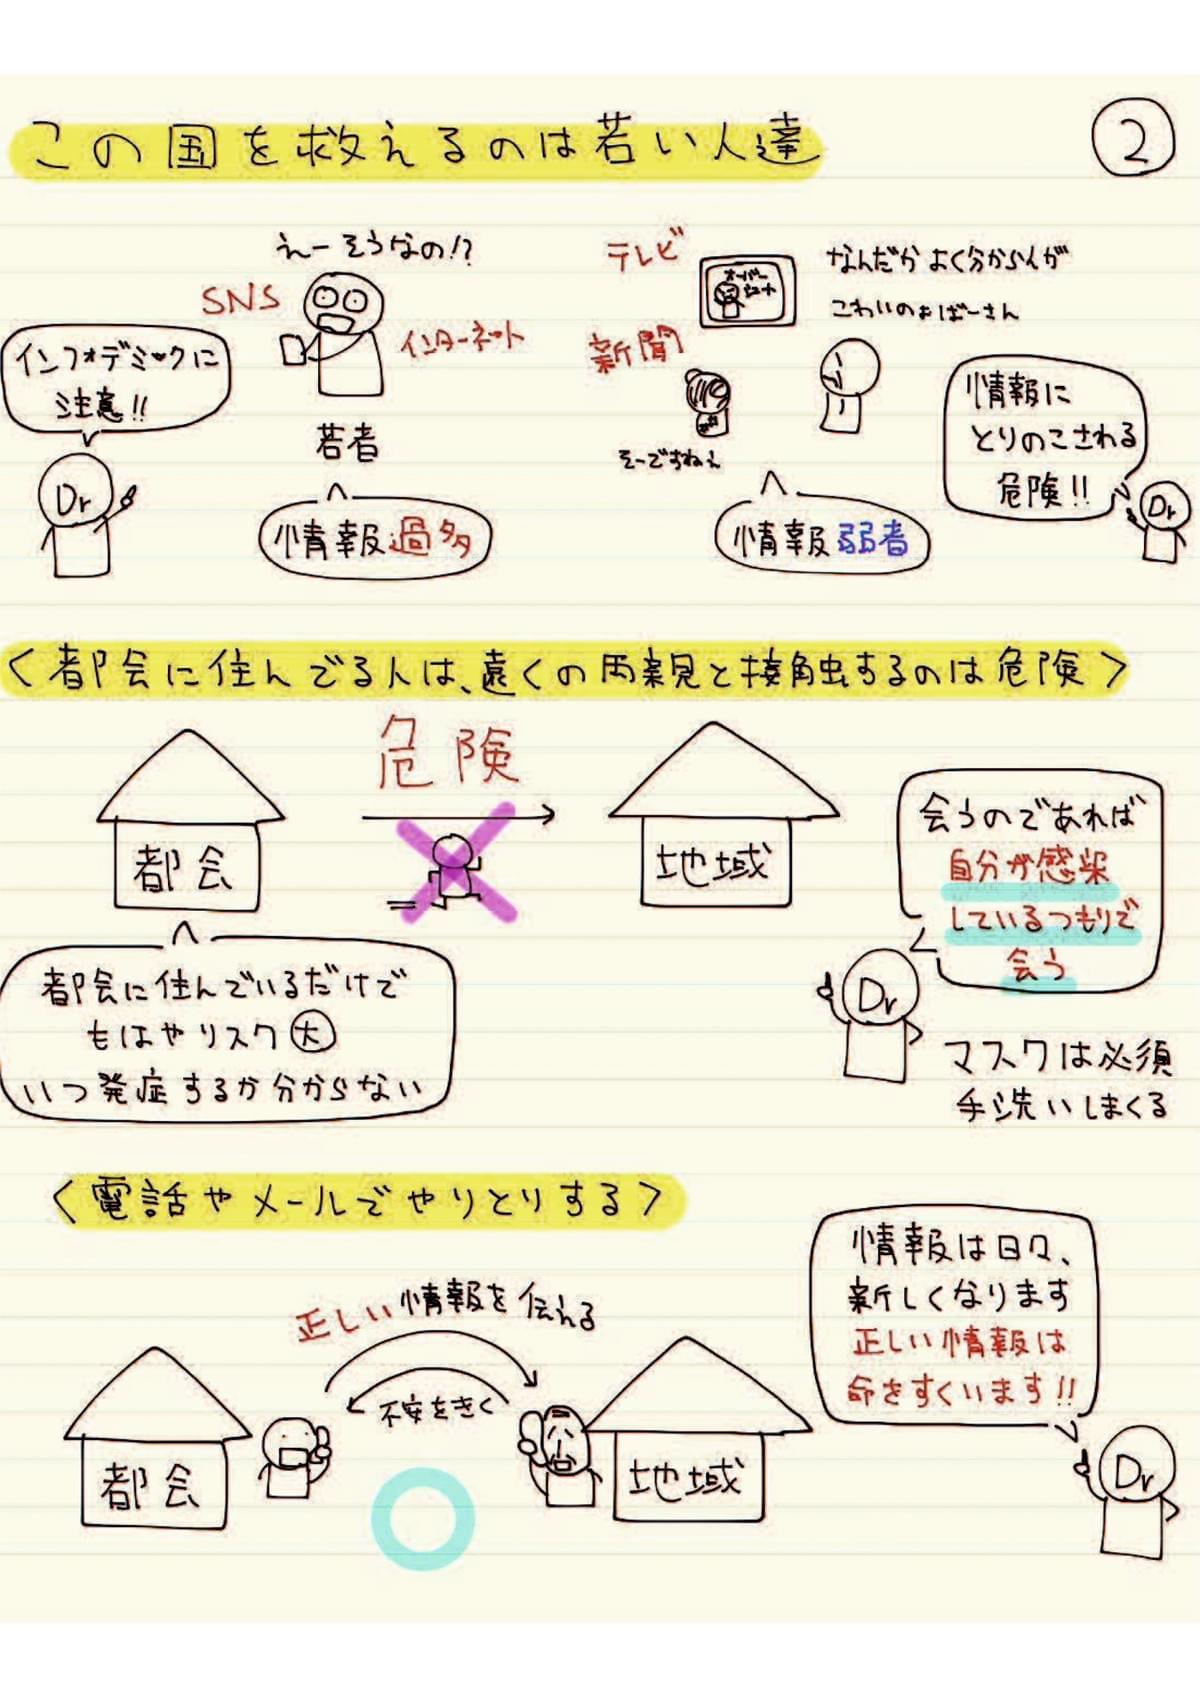 この国を救えるのは若い人達
②
えーそうなの!?
SNS
インターネット
インフォデミックに
注意!!
Dr
若者
情報過多
テレビ
オーバー
シュート
なんだかよく分からんが
こわいのぉばーさん
新聞
そーですねぇ
情報弱者
情報に
とりのこされる
危険!!
Dr
〈都会に住んでる人は、遠くの両親と接触するのは危険〉
危険
都会
地域
都会に住んでいるだけで
もはやリスク大
いつ発症するか分からない
会うのであれば
自分が感染
しているつもりで
会う
Dr
マスクは必須
手洗いしまくる
〈電話やメールでやりとりする〉
正しい情報を伝える
不安をきく
都会
地域
情報は日々、
新しくなります
正しい情報は
命をすくいます!!
Dr